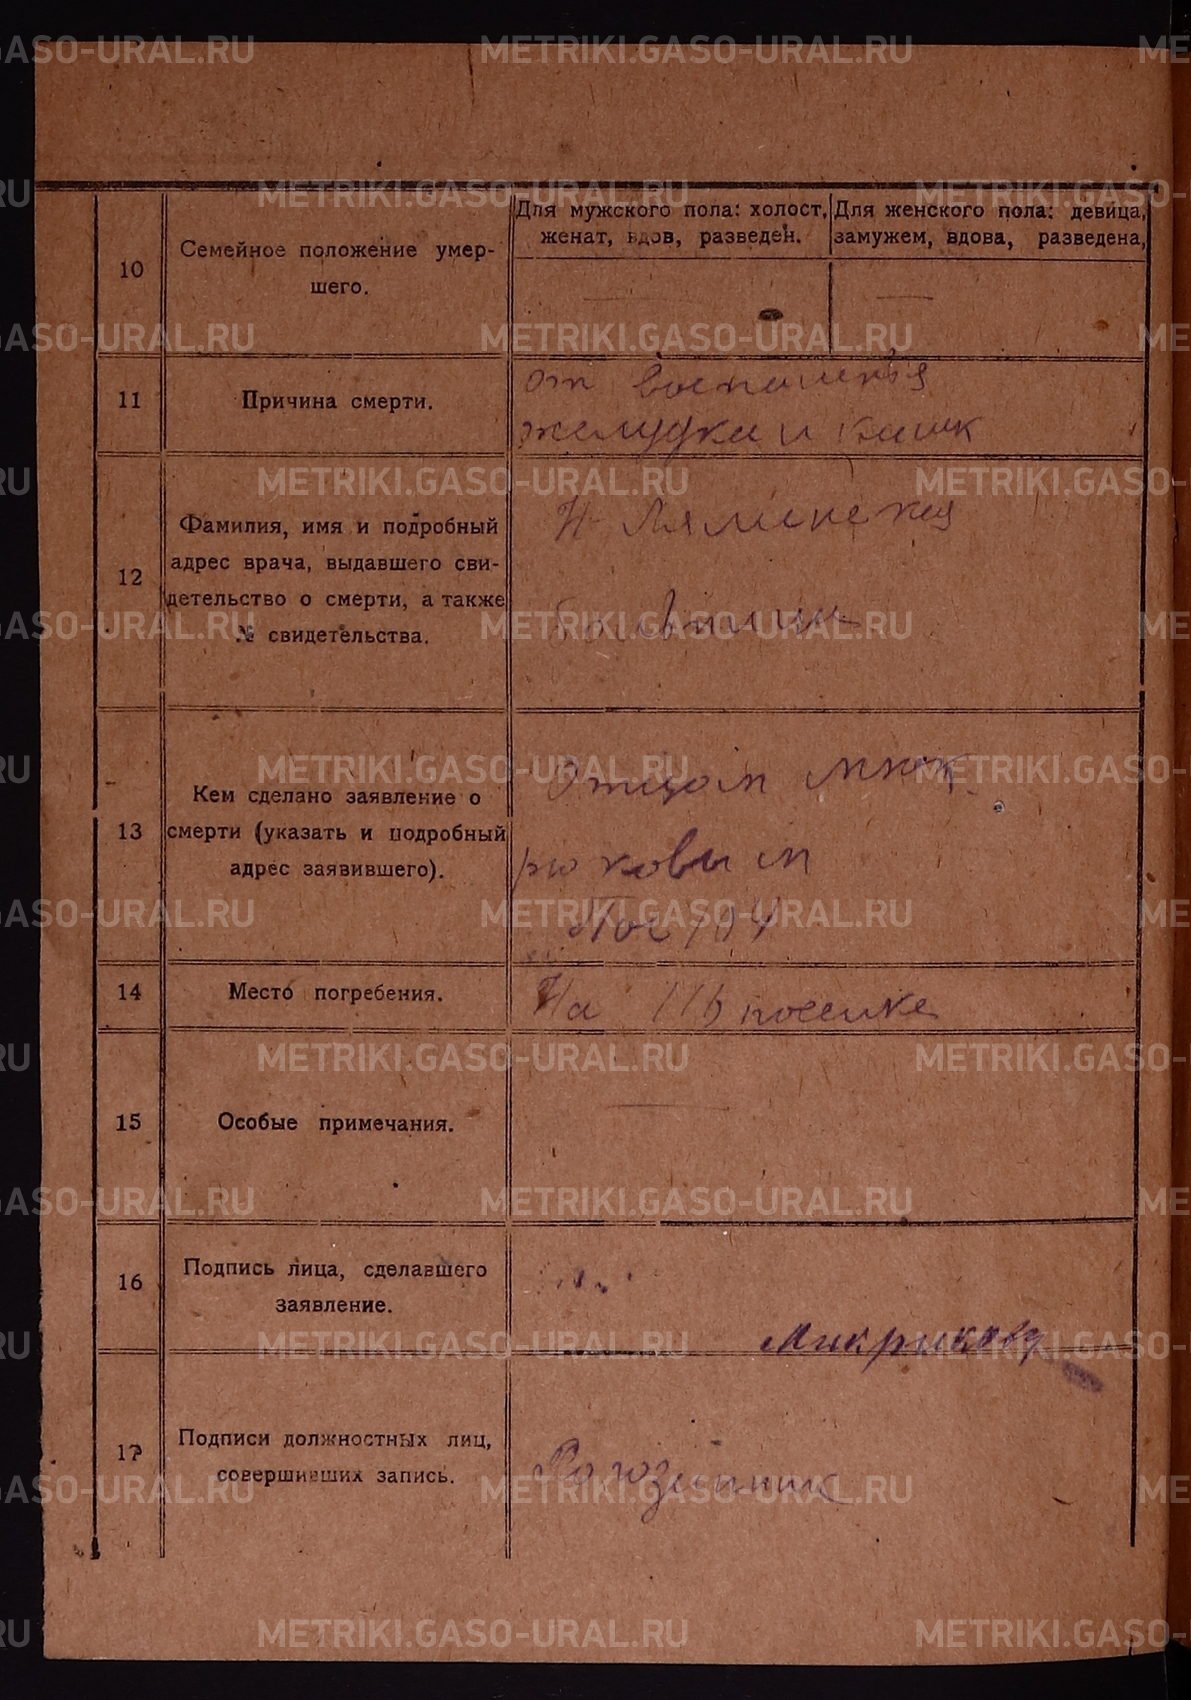 METRIKI.GASO-URAL.RU
Для мужского пола: холост, женат, вдов, разведен.
Для женского пола: девица, замужем, вдова, разведена,
10
Семейное положение умер-
шего.
11
Причина смерти.
от воспаления
желудка и кишк
12
Фамилия, имя и подробный
адрес врача, выдавшего сви-
детельство о смерти, а также
№ свидетельства.
больниц
13
Кем сделано заявление о
смерти (указать и подробный
адрес заявившего).
Отцом
рюковым
Пос
14
Место погребения.
На 116 поселке
15
Особые примечания.
16
Подпись лица, сделавшего
заявление.
17
Подписи должностных лиц,
совершивших запись.
Рогозинник